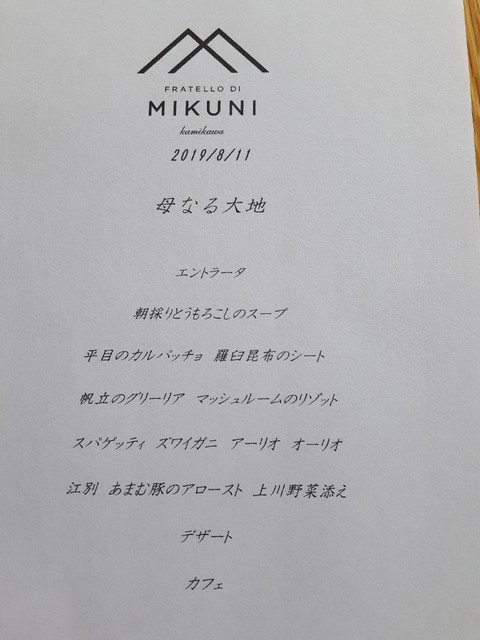 FRATELLO DI
MIKUNI
kamikawa
2019/8/11
母なる大地
エントラータ
朝採りとうもろこしのスープ
平目のカルパッチョ 羅臼昆布のシート
帆立のグリーリア マッシュルームのリゾット
スパゲッティ ズワイガニ アーリオ オーリオ
江別 あまむ豚のアロースト 上川野菜添え
デザート
カフェ